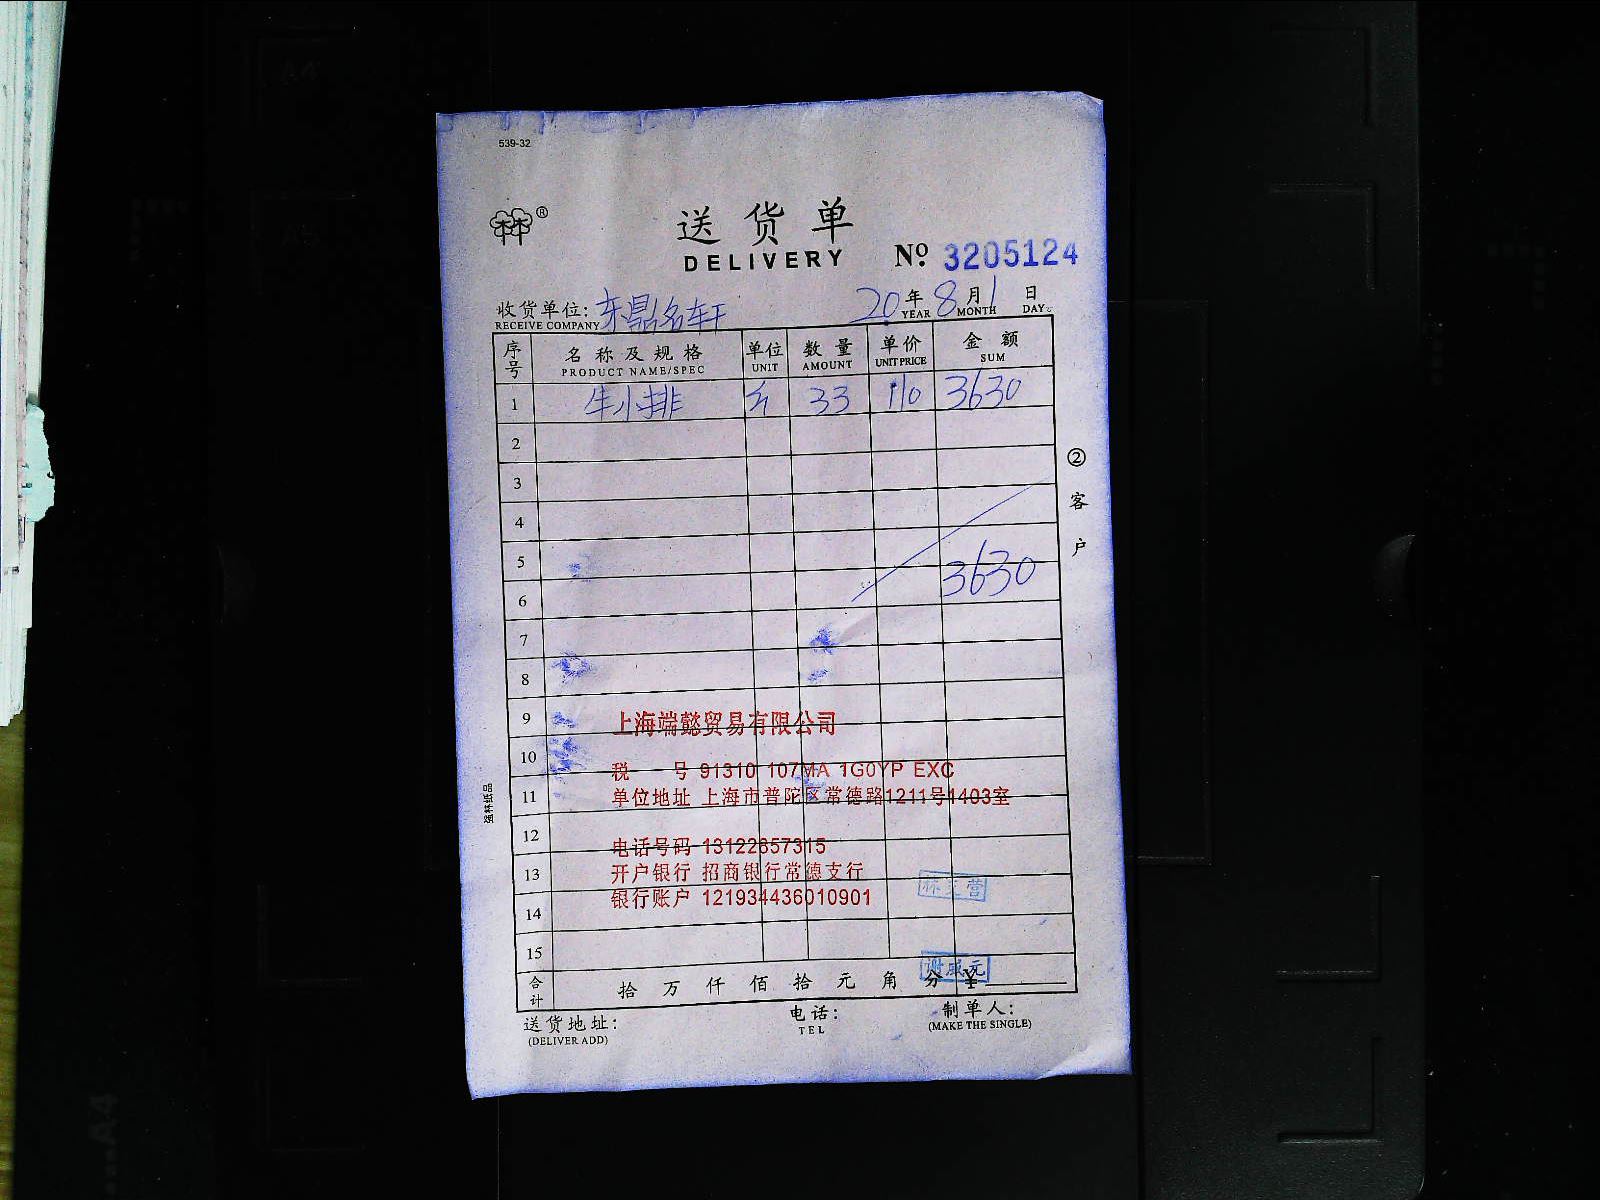 539-32
送货单
DELIVERY
№ 3205124
收货单位: 东鼎名轩 20年8月1日
RECEIVE COMPANY YEAR MONTH DAY
序号 名称及规格 单位 数量 单价 金额
PRODUCT NAME/SPEC UNIT AMOUNT UNIT PRICE SUM
1 牛小排 33 110 3630
2
3
4
5
6 3630
7
8
9
上海端懿贸易有限公司
10
税 号 91310 107MA 1G0YP EXC
11
单位地址 上海市普陀区常德路1211号1403室
12
电话号码 13122857315
13
开户银行 招商银行常德支行
银行账户 121934436010901
14
15
谢成元
合计 拾 万 仟 佰 拾 元 角 分 ¥
送货地址: 电话: 制单人:
(DELIVER ADD) TEL (MAKE THE SINGLE)
②客户
强林纸品
A4